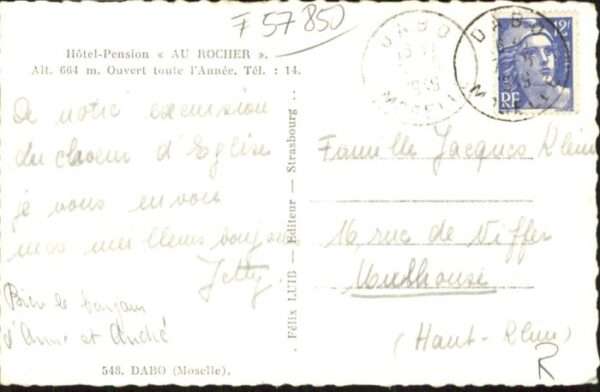 F 57850
Hôtel-Pension « AU ROCHER ».
Alt. 664 m. Ouvert toute l'Année. Tél. : 14.
De notre excursion
du choeur d'Eglise
je vous envoie
mes meilleurs
Jetty.
Bien le bonjour
d'Anne et André
548. DABO (Moselle).
Félix LUIB — Editeur — Strasbourg
DABO
MOSELLE
DABO
MOSELLE
12F
RF
Famille Jacques Klein
16, rue de
Mulhouse
(Haut-Rhin)
R